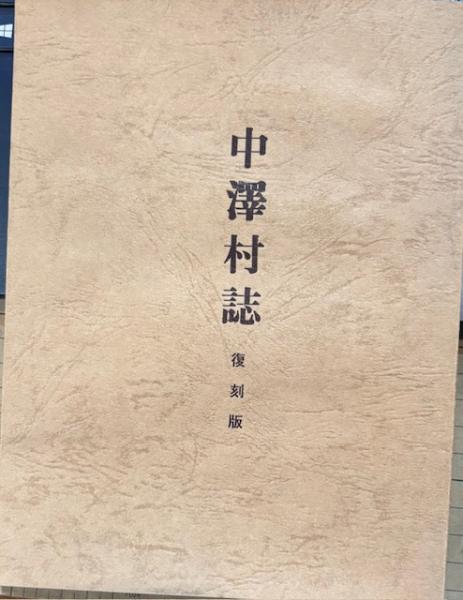 中澤村誌
復刻版